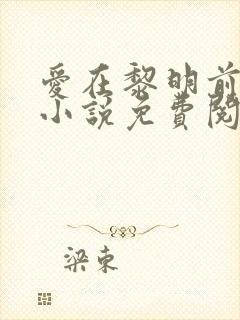 愛在黎明前
小說免費閱
梁東